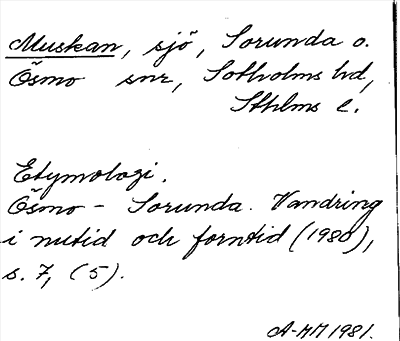 Muskan, sjö, Sorunda o.
Ösmo snr, Sotholms hd,
Sthlms l.
Etymologi.
Ösmo - Sorunda. Vandring
i nutid och forntid (1980),
s. 7, (5).
A-MM 1981.